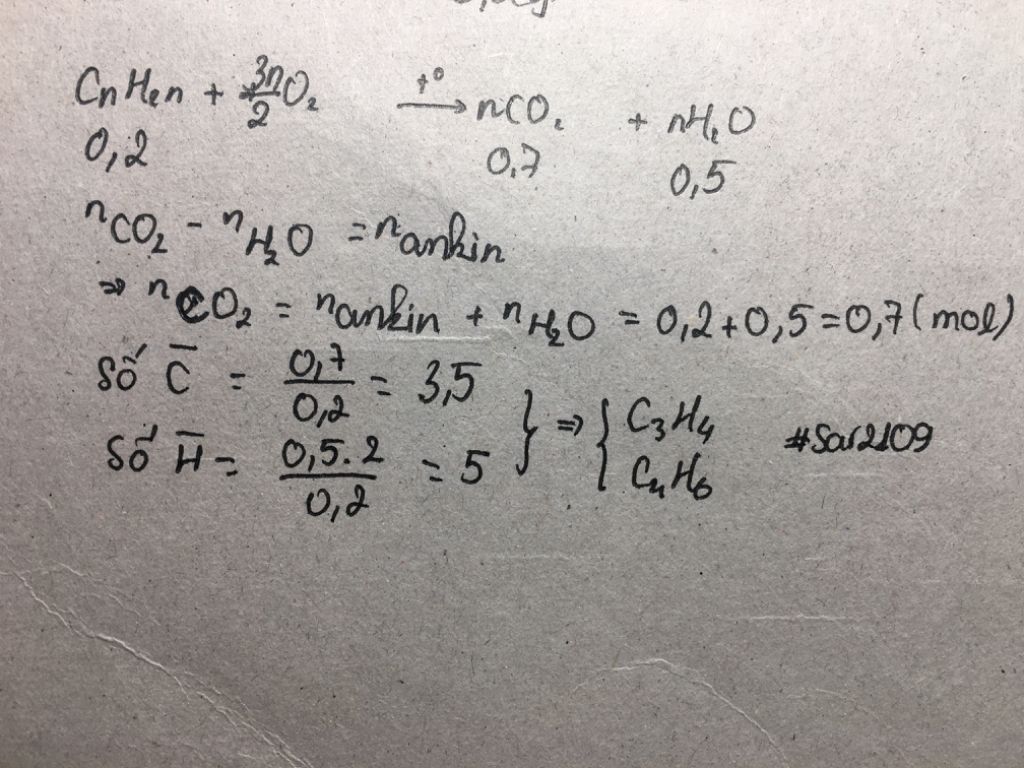 CnH2n + 3n/2 O2 —t°→ nCO2 + nH2O
0,2 0,7 0,5
nCO2 - nH2O = nankin
⇒ nCO2 = nankin + nH2O = 0,2+0,5=0,7(mol)
Số C̅ = 0,7/0,2 = 3,5
Số H̅ = 0,5.2/0,2 = 5 } ⇒ { C3H4 C4H6 #Sar2109